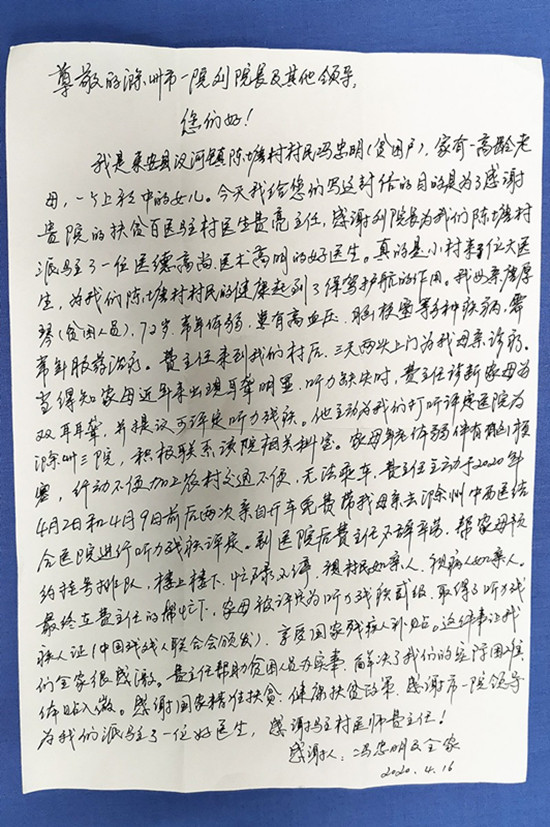 尊敬的滁州市一院刘院长及其他领导,
您们好!
我是来安县汊河镇陈塘村村民冯忠明(贫困户),家有一高龄老
母,一个上初中的女儿。今天我给您们写这封信的目的是为了感谢
贵院的扶贫百医驻村医生费亮主任,感谢刘院长为我们陈塘村
派驻了一位医德高尚、医术高明的好医生。真的是小村来了位大医
生,为我们陈塘村村民的健康起到了保驾护航的作用。我母亲厚
琴(贫困人员),72岁,常年体弱,患有高血压、脑梗塞等多种疾病,需
常年服药治疗。费主任来到我们村后,三天两头上门为我母亲诊病。
当得知家母近年来出现耳聋明显,听力缺失时,费主任诊断家母为
双耳耳聋,并提议可评定听力残疾。他主动为我们打听评定医院为
滁州三院,积极联系该院相关科室。家母年老体弱伴有脑梗
塞,行动不便加上农村交通不便,无法乘车,费主任主动于2020年
4月2日和4月9日前后两次亲自开车免费带我母亲去滁州中西医结
合医院进行听力残疾评定。到医院后费主任不辞辛劳,帮家母预
约挂号排队,楼上楼下,忙碌不停,视村民如亲人,视病人如亲人。
最终在费主任的帮忙下,家母被评定为听力残疾贰级,取得了听力残
疾人证(中国残残人联合会颁发),享受国家残疾人补贴。这件事让我
们全家很感激。费主任帮助贫困人员办实事,解决了我们的实际困难,
体贴入微。感谢国家精准扶贫、健康扶贫政策,感谢市一院领导
为我们派驻了一位好医生,感谢驻村医师费主任!
感谢人:冯忠明及全家
2020.4.16